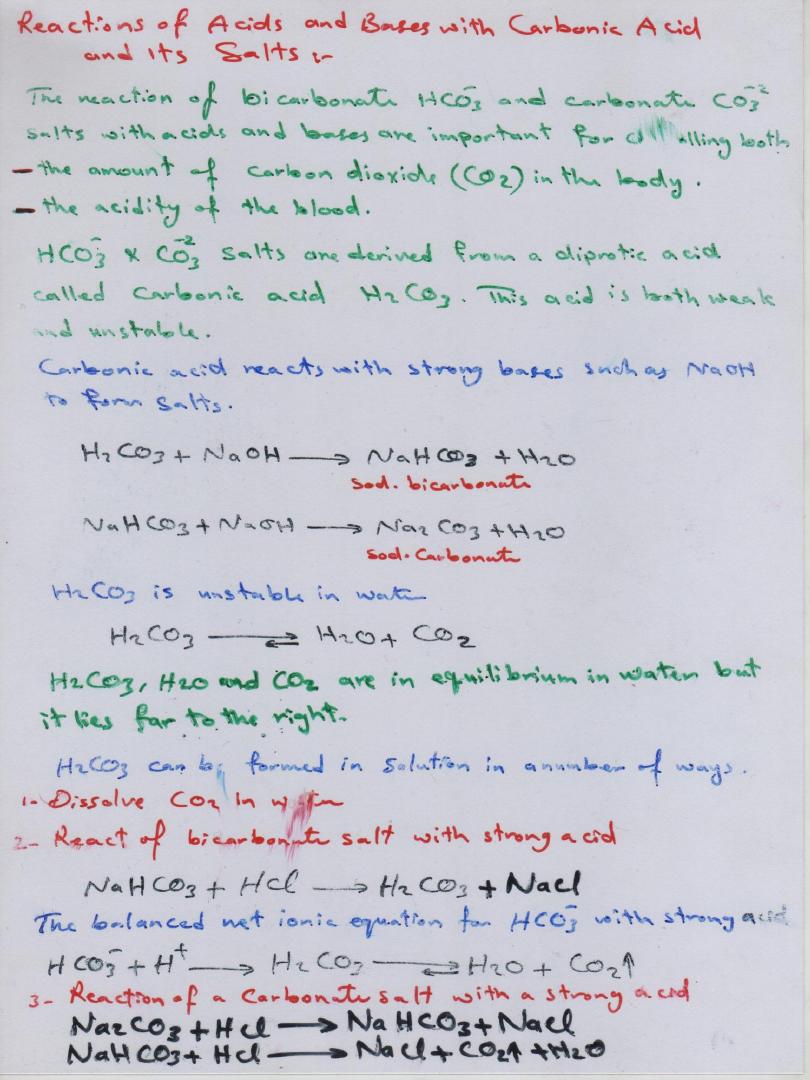 Reactions of Acids and Bases with Carbonic Acid
and Its Salts :-
The reaction of bicarbonate HCO₃⁻ and carbonate CO₃⁻²
salts with acids and bases are important for alling both
- the amount of carbon dioxide (CO₂) in the body.
- the acidity of the blood.
HCO₃⁻ & CO₃⁻² salts are derived from a diprotic acid
called Carbonic acid H₂CO₃. This acid is both weak
and unstable.
Carbonic acid reacts with strong bases such as NaOH
to form salts.
H₂CO₃ + NaOH → NaHCO₃ + H₂O
sod. bicarbonate
NaHCO₃ + NaOH → Na₂CO₃ + H₂O
sod. Carbonate
H₂CO₃ is unstable in water
H₂CO₃ ⇌ H₂O + CO₂
H₂CO₃, H₂O and CO₂ are in equilibrium in water but
it lies far to the right.
H₂CO₃ can be formed in solution in a number of ways.
1- Dissolve CO₂ in water
2- React of bicarbonate salt with strong acid
NaHCO₃ + HCl → H₂CO₃ + NaCl
The balanced net ionic equation for HCO₃⁻ with strong acid
HCO₃⁻ + H⁺ → H₂CO₃ ⇌ H₂O + CO₂↑
3- Reaction of a Carbonate salt with a strong acid
Na₂CO₃ + HCl → NaHCO₃ + NaCl
NaHCO₃ + HCl → NaCl + CO₂↑ + H₂O